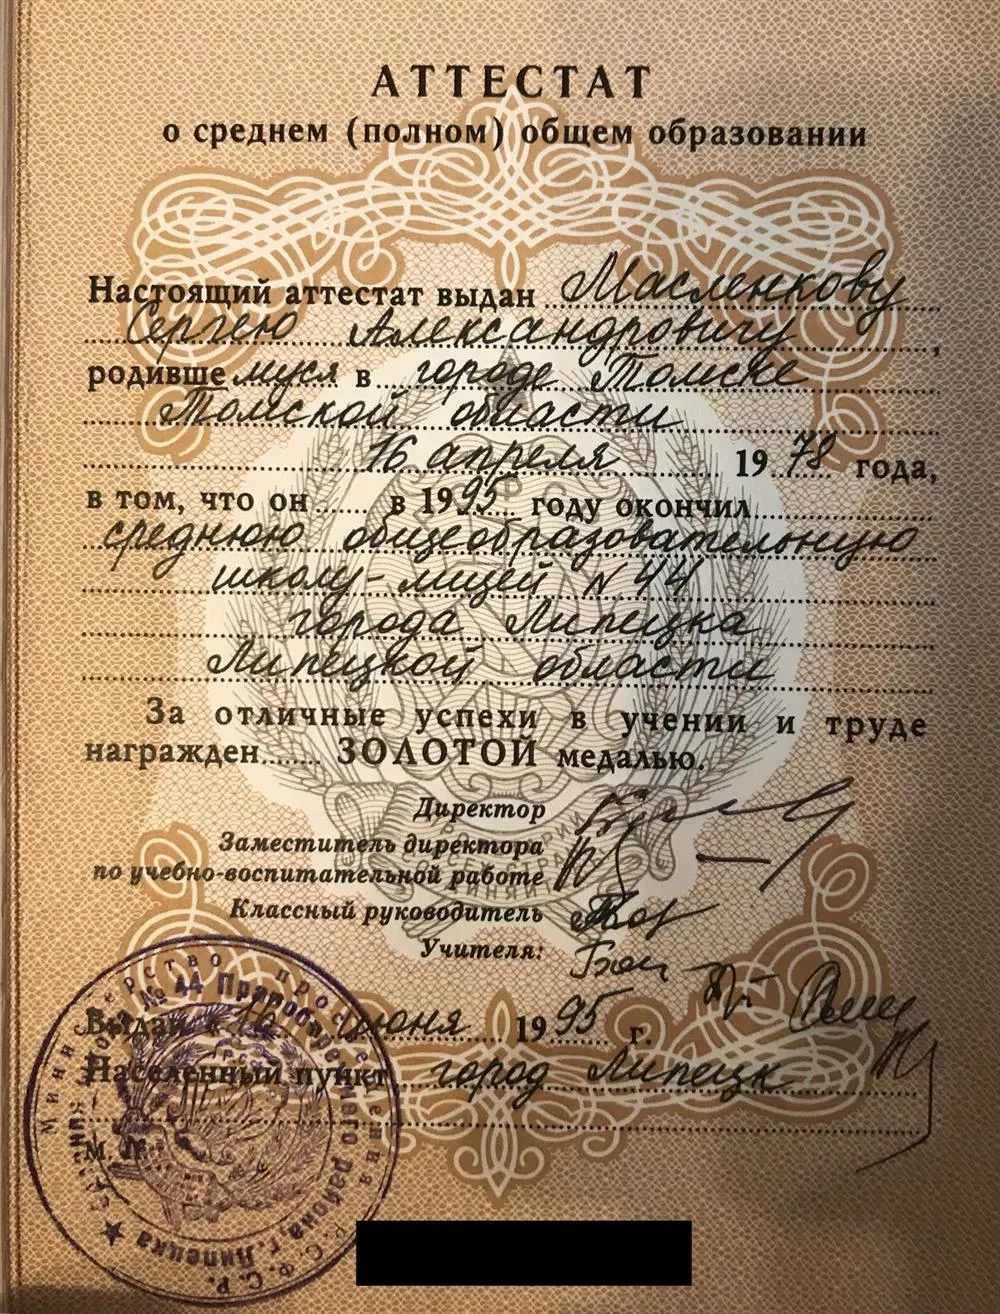 АТТЕСТАТ
о среднем (полном) общем образовании
Настоящий аттестат выдан Масленкову
Сергею Александровичу,
родившемуся в городе Томске
Томской области
16 апреля 1978 года,
в том, что он в 1995 году окончил
среднюю общеобразовательную
школу-лицей N 44
города Липецка
Липецкой области
За отличные успехи в учении и труде
награжден ЗОЛОТОЙ медалью.
Директор
Заместитель директора
по учебно-воспитательной работе
Классный руководитель
Учителя:
Выдан июня 1995 г.
Населенный пункт город Липецк
М. П.
Министерство просвещения Р.С.Ф.С.Р.
№ 44 Правобережного района г. Липецка